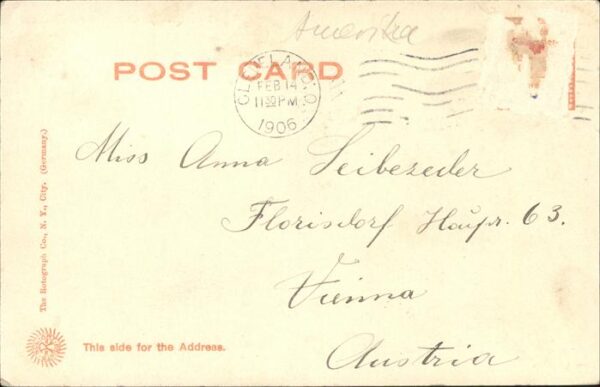 Amerika
POST CARD
CLEVELAND, O.
FEB 14
11 30 PM
1906
Miss Anna Seibezeder
Florisdorf Haupr. 63.
Vienna
Austria
The Rotograph Co., N. Y., City. (Germany.)
This side for the Address.